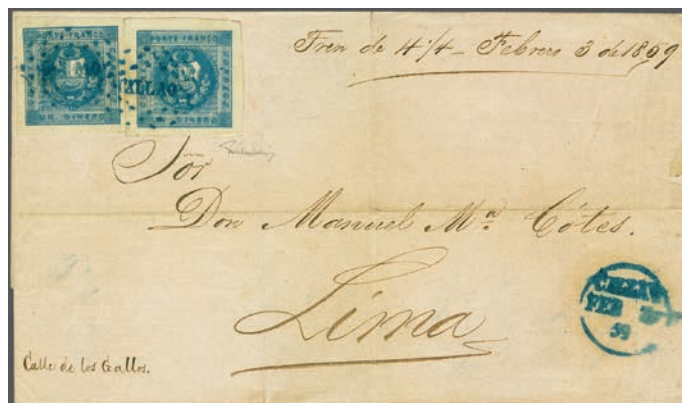 PORTE FRANCO
UN DINERO
PORTE FRANCO
UN DINERO
CALLAO
Tren de 4 1/4 - Febrero 3 de 1859
Sor
Don Manuel Ma. Cótes.
Lima
CALLAO
FEB 3
59
Calle de los Gallos.